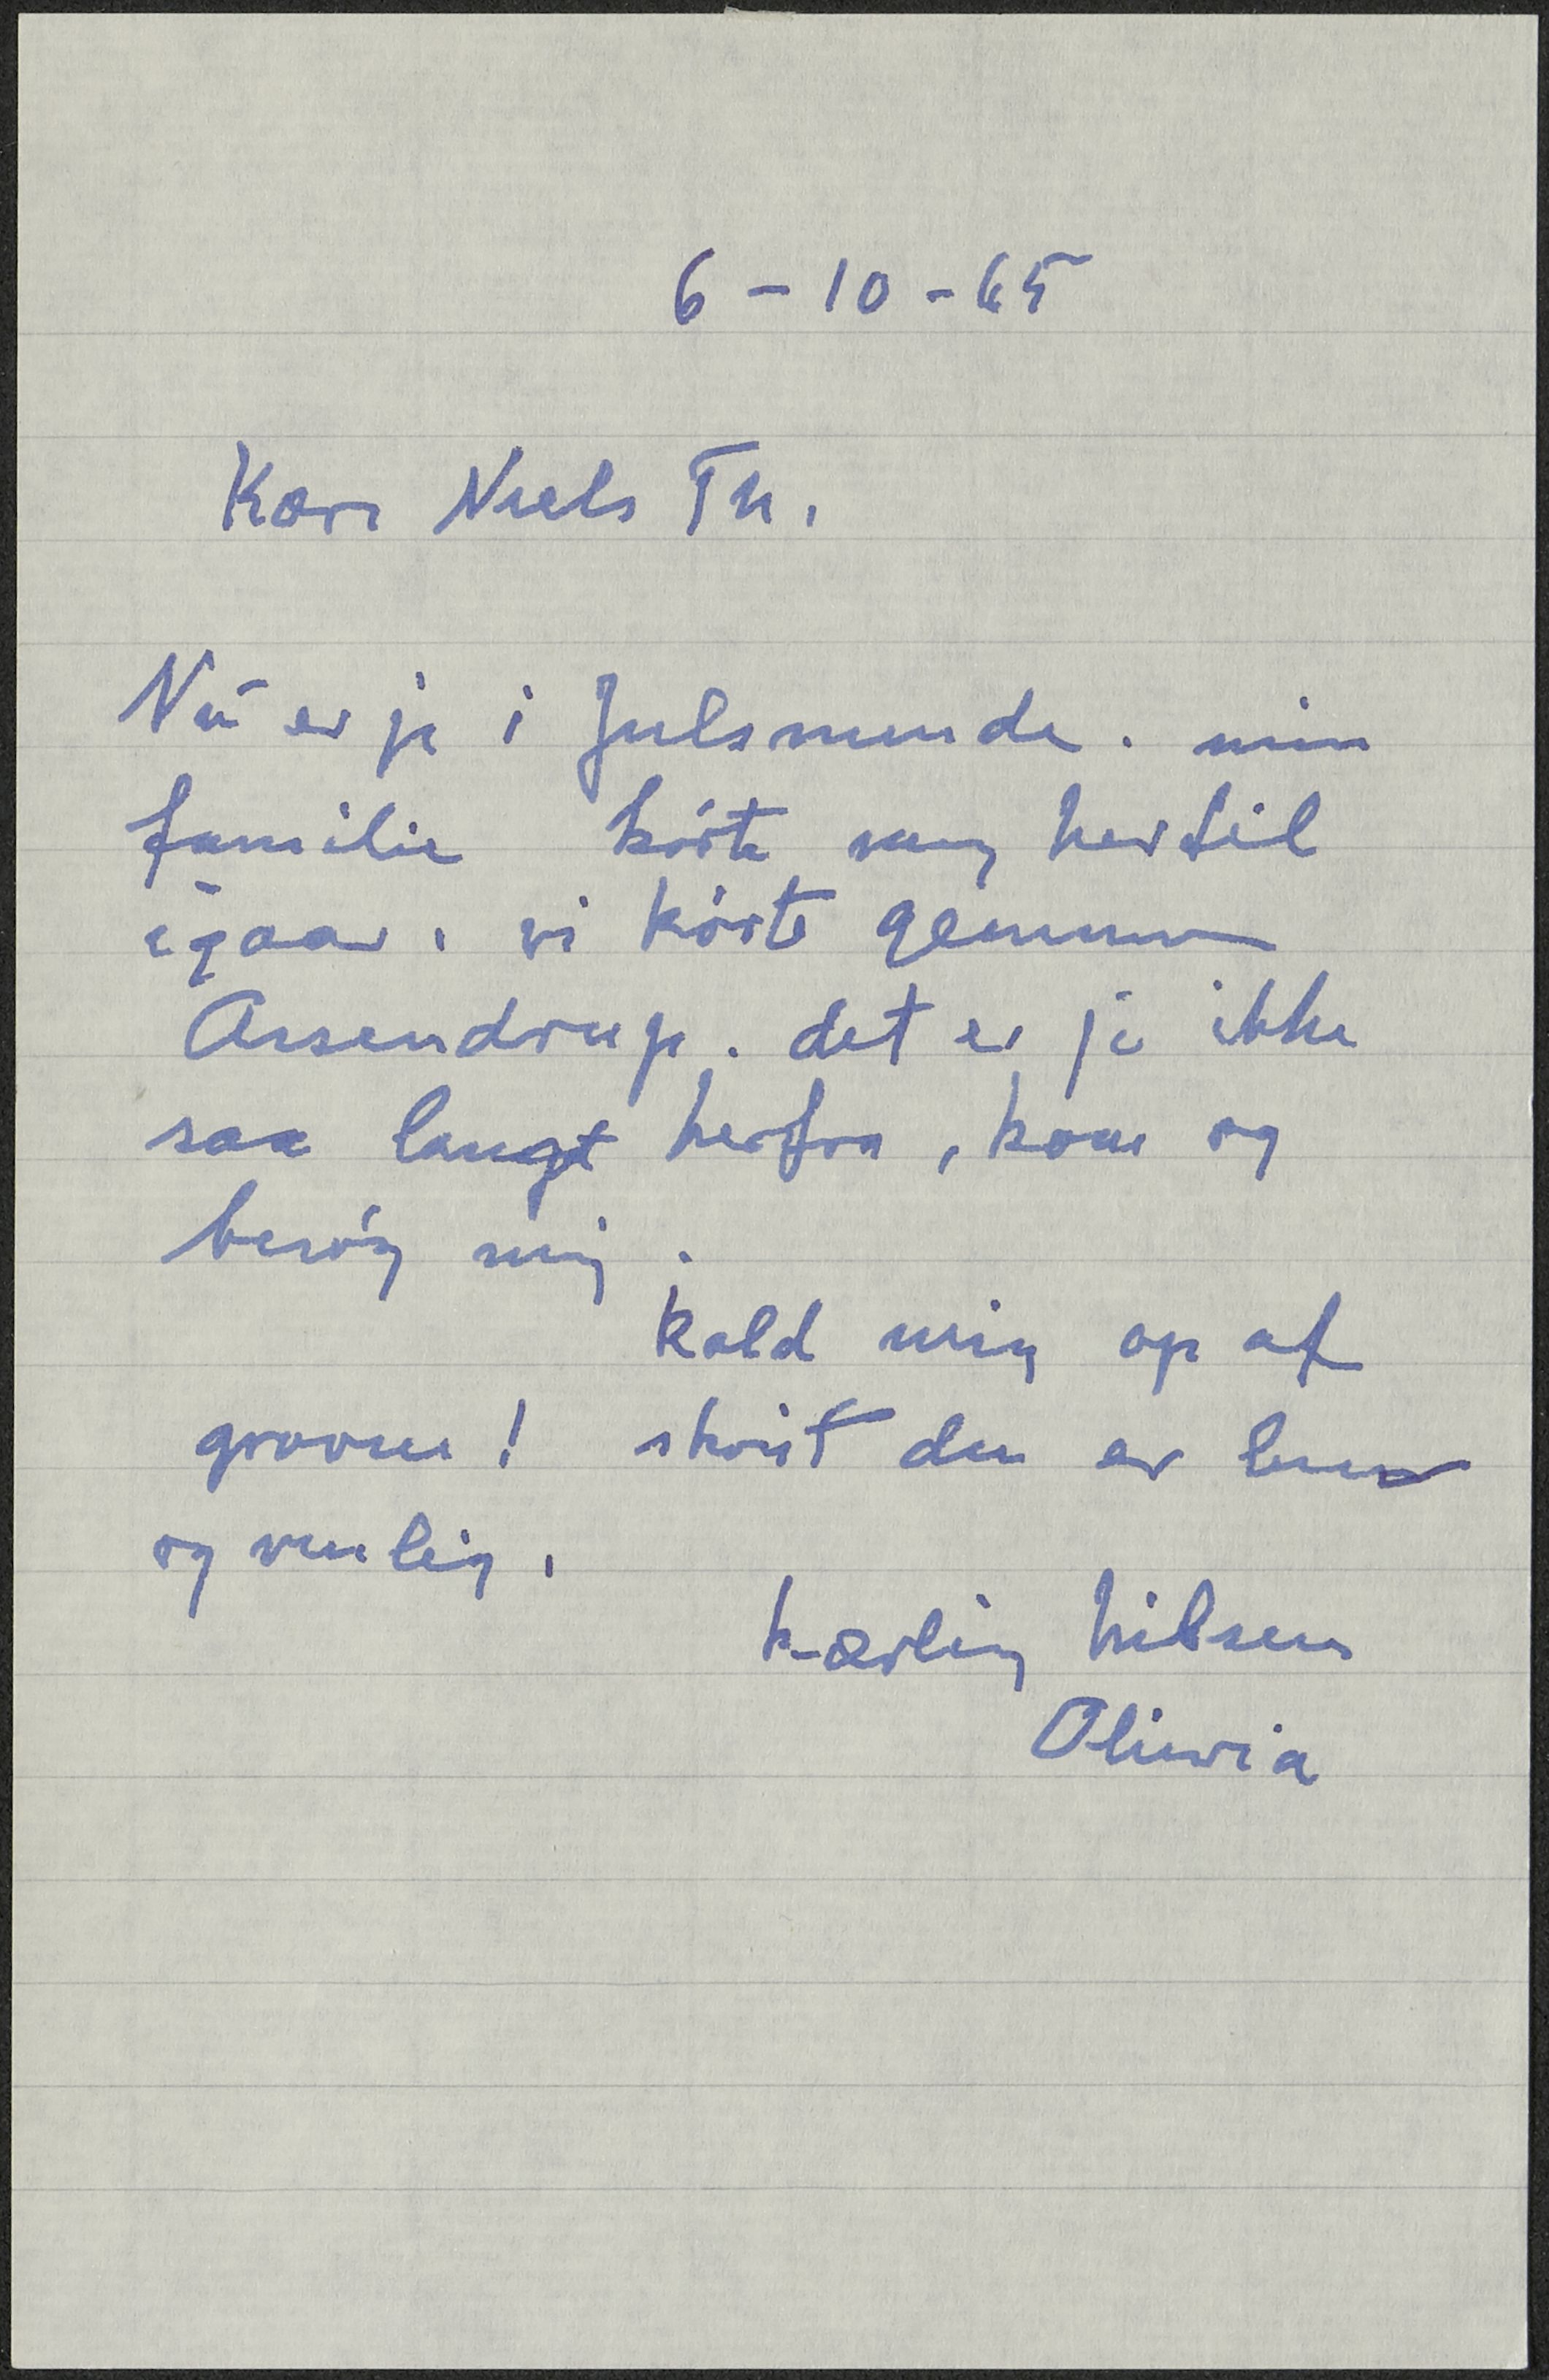 6 - 10 - 65
Kære Niels Th.
Nu er jeg i Julsminde. min
familie kørte mig hertil
igaar. vi kørte gennem
Assendrup. det er jo ikke
saa langt herfra, kom og
besøg mig.
kald mig op af
graven! skönt den er lun
og venlig.
kærlig hilsen
Olivia